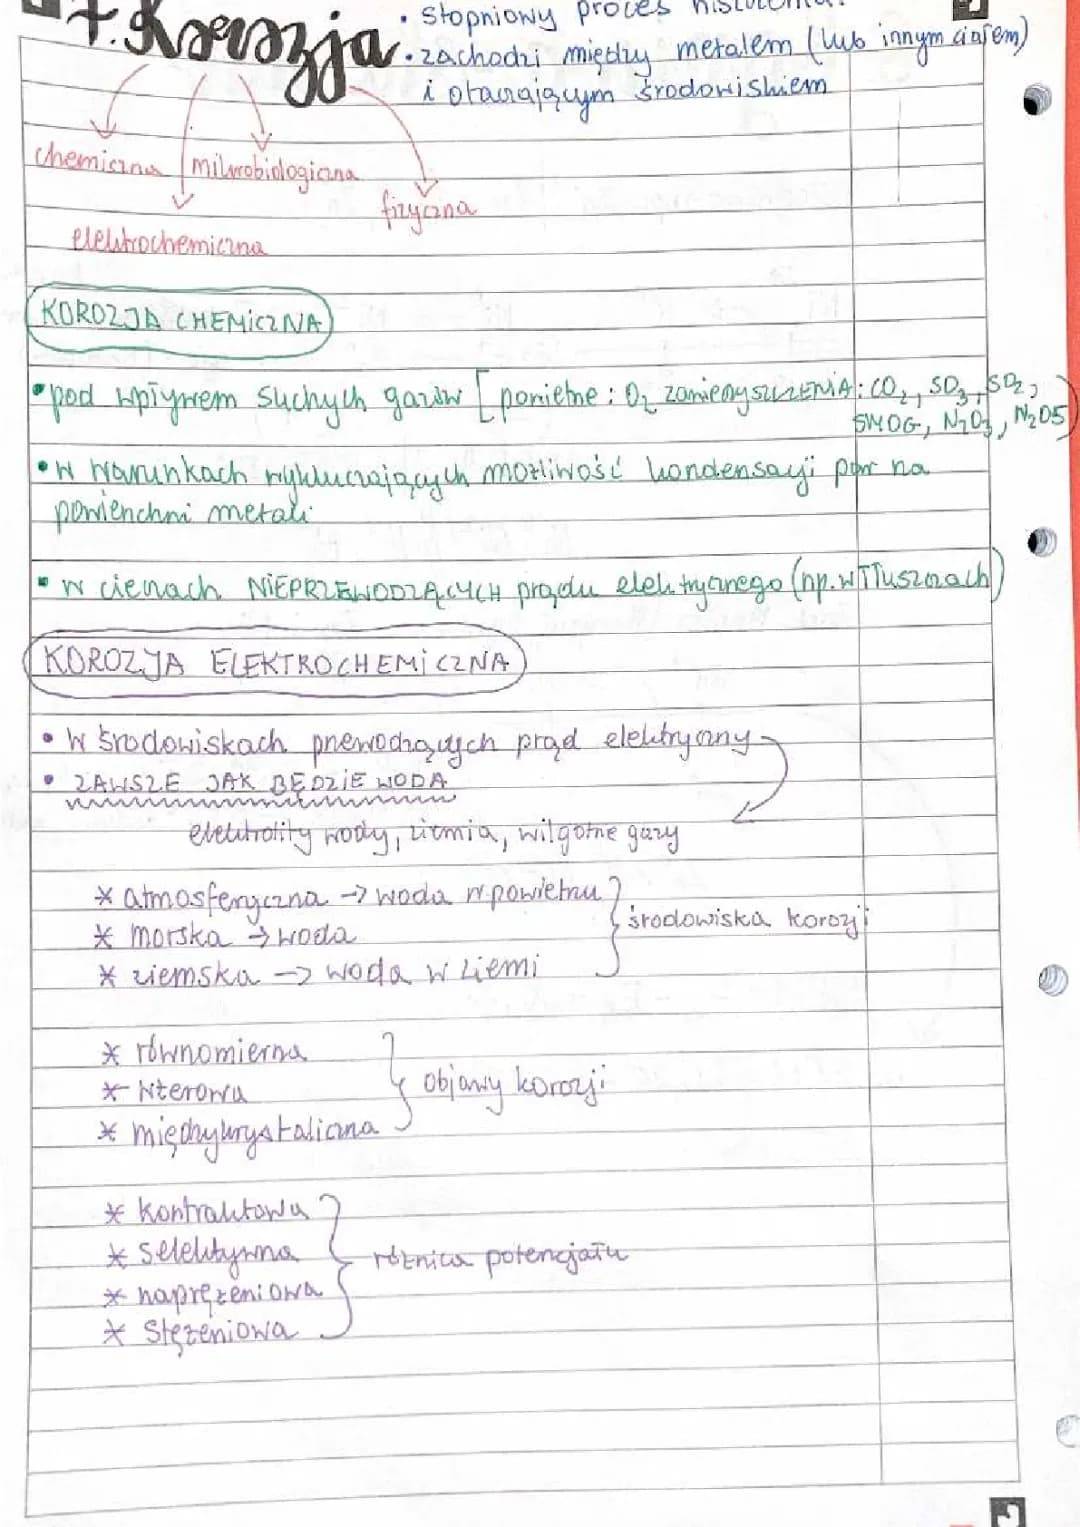 7. Korozja
• Stopniowy proces
• zachodzi między metalem (lub innym ciałem)
i otaczającym środowiskiem
chemiczna
mikrobiologiczna
fizyczna
elektrochemiczna
KOROZJA CHEMICZNA
• pod wpływem suchych gazów [powietrze: O₂ zanieczySZCZENIA: CO₂, SO₃, SO₂,
SMOG, N₂O₃, N₂O5)
• w warunkach wykluczających możliwość kondensacji par na
powierzchni metali
• w cieczach NIEPRZEWODZĄCYCH prądu elektrycznego (np. w Tłuszczach)
KOROZJA ELEKTROCHEMICZNA
• w środowiskach przewodzących prąd elektryczny
• ZAWSZE JAK BĘDZIE WODA
elektrolity wody, ziemia, wilgotne gazy
* atmosferyczna → woda w powietrzu
* morska → woda
* ziemska → woda w ziemi
} środowiska korozji
* równomierna
* wżerowa
* międzykrystaliczna
} objawy korozji
* kontraktowa
* selektywna
* naprężeniowa
* stężeniowa
} różnica potencjału